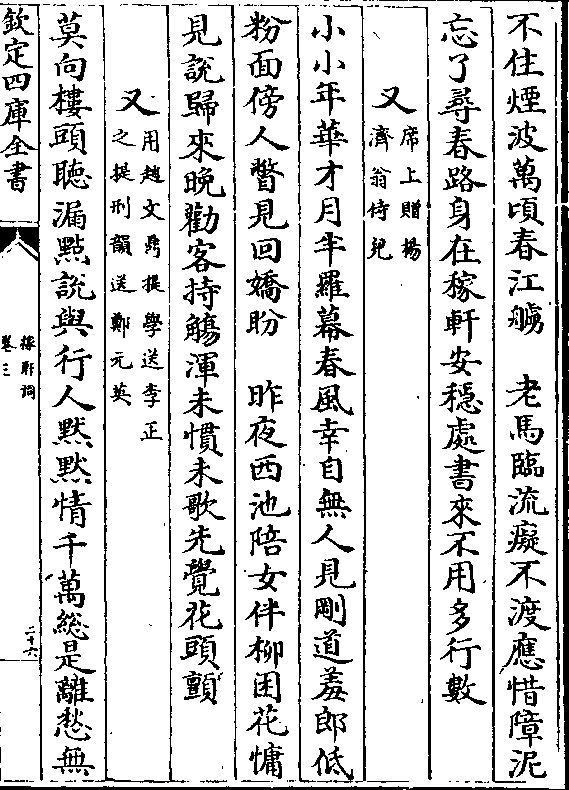 不住煙波萬頃春江艣　老馬臨流癡不渡應惜障泥
忘了尋春路身在稼軒安穩處書來不用多行數
又
席上贈楊
濟翁侍兒
小小年華才月半羅幕春風幸自無人見剛道羞郎低
粉面傍人瞥見回嬌盼　昨夜西池陪女伴柳困花慵
見說歸來晚勸客持觴渾未慣未歌先覺花頭顫
又
用趙文鼎提學送李正
之提刑韻送鄭元英
莫向樓頭聽漏點說與行人黙黙情千萬總是離愁無
欽定四庫全書
稼軒詞
卷三
二十六